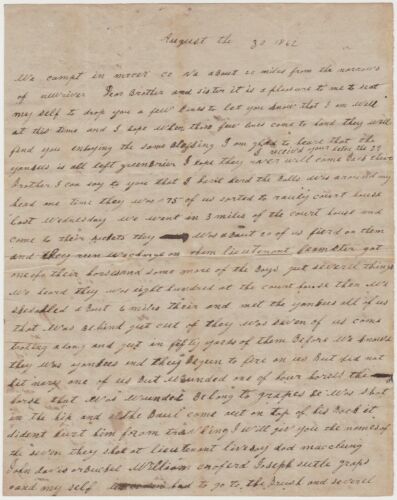 August the 30 1862
We campt in mercer co va about 20 miles from the narrows
of newriver Dear Brother and sister it is a pleasure to me to seat
my self to drop you a few lines to let you know that I am well
at this time and I hope when these few lines come to hand they will
find you enjoying the same Blessing I am glad to hear that the
I received your letter the 29
yankees is all left greenbrier I hope they never will come back there
Brother I can say to you that I have herd the Balls whis around my
head one time they was 75 of us sorted to court house
last Wednesday we went in 3 miles of the court house and
come to their pickets they was about 20 of us fierd on them
and they run we charge on them lieutenant got
one of their horses and some more of the Boys got severl things
We heard they was eight hundred at the court house then we
about 6 miles their and met the yankees all of us
that was behind got cut of they was seven of us come
troting along and got in fifty yards of them Before we knowed
they was yankees and they Begun to fire on us But did not
hit nary one of us But wounded one of hour horses the
horse that was wounded Belong to grapes he was shot
in the hip and the Baul come out on top of his Back it
dident hurt him from traviling I will give you the names of
the seven they shot at lieutenant dod macclung
John davis William Joseph settle graps
and my self had to go to the Brush and severl